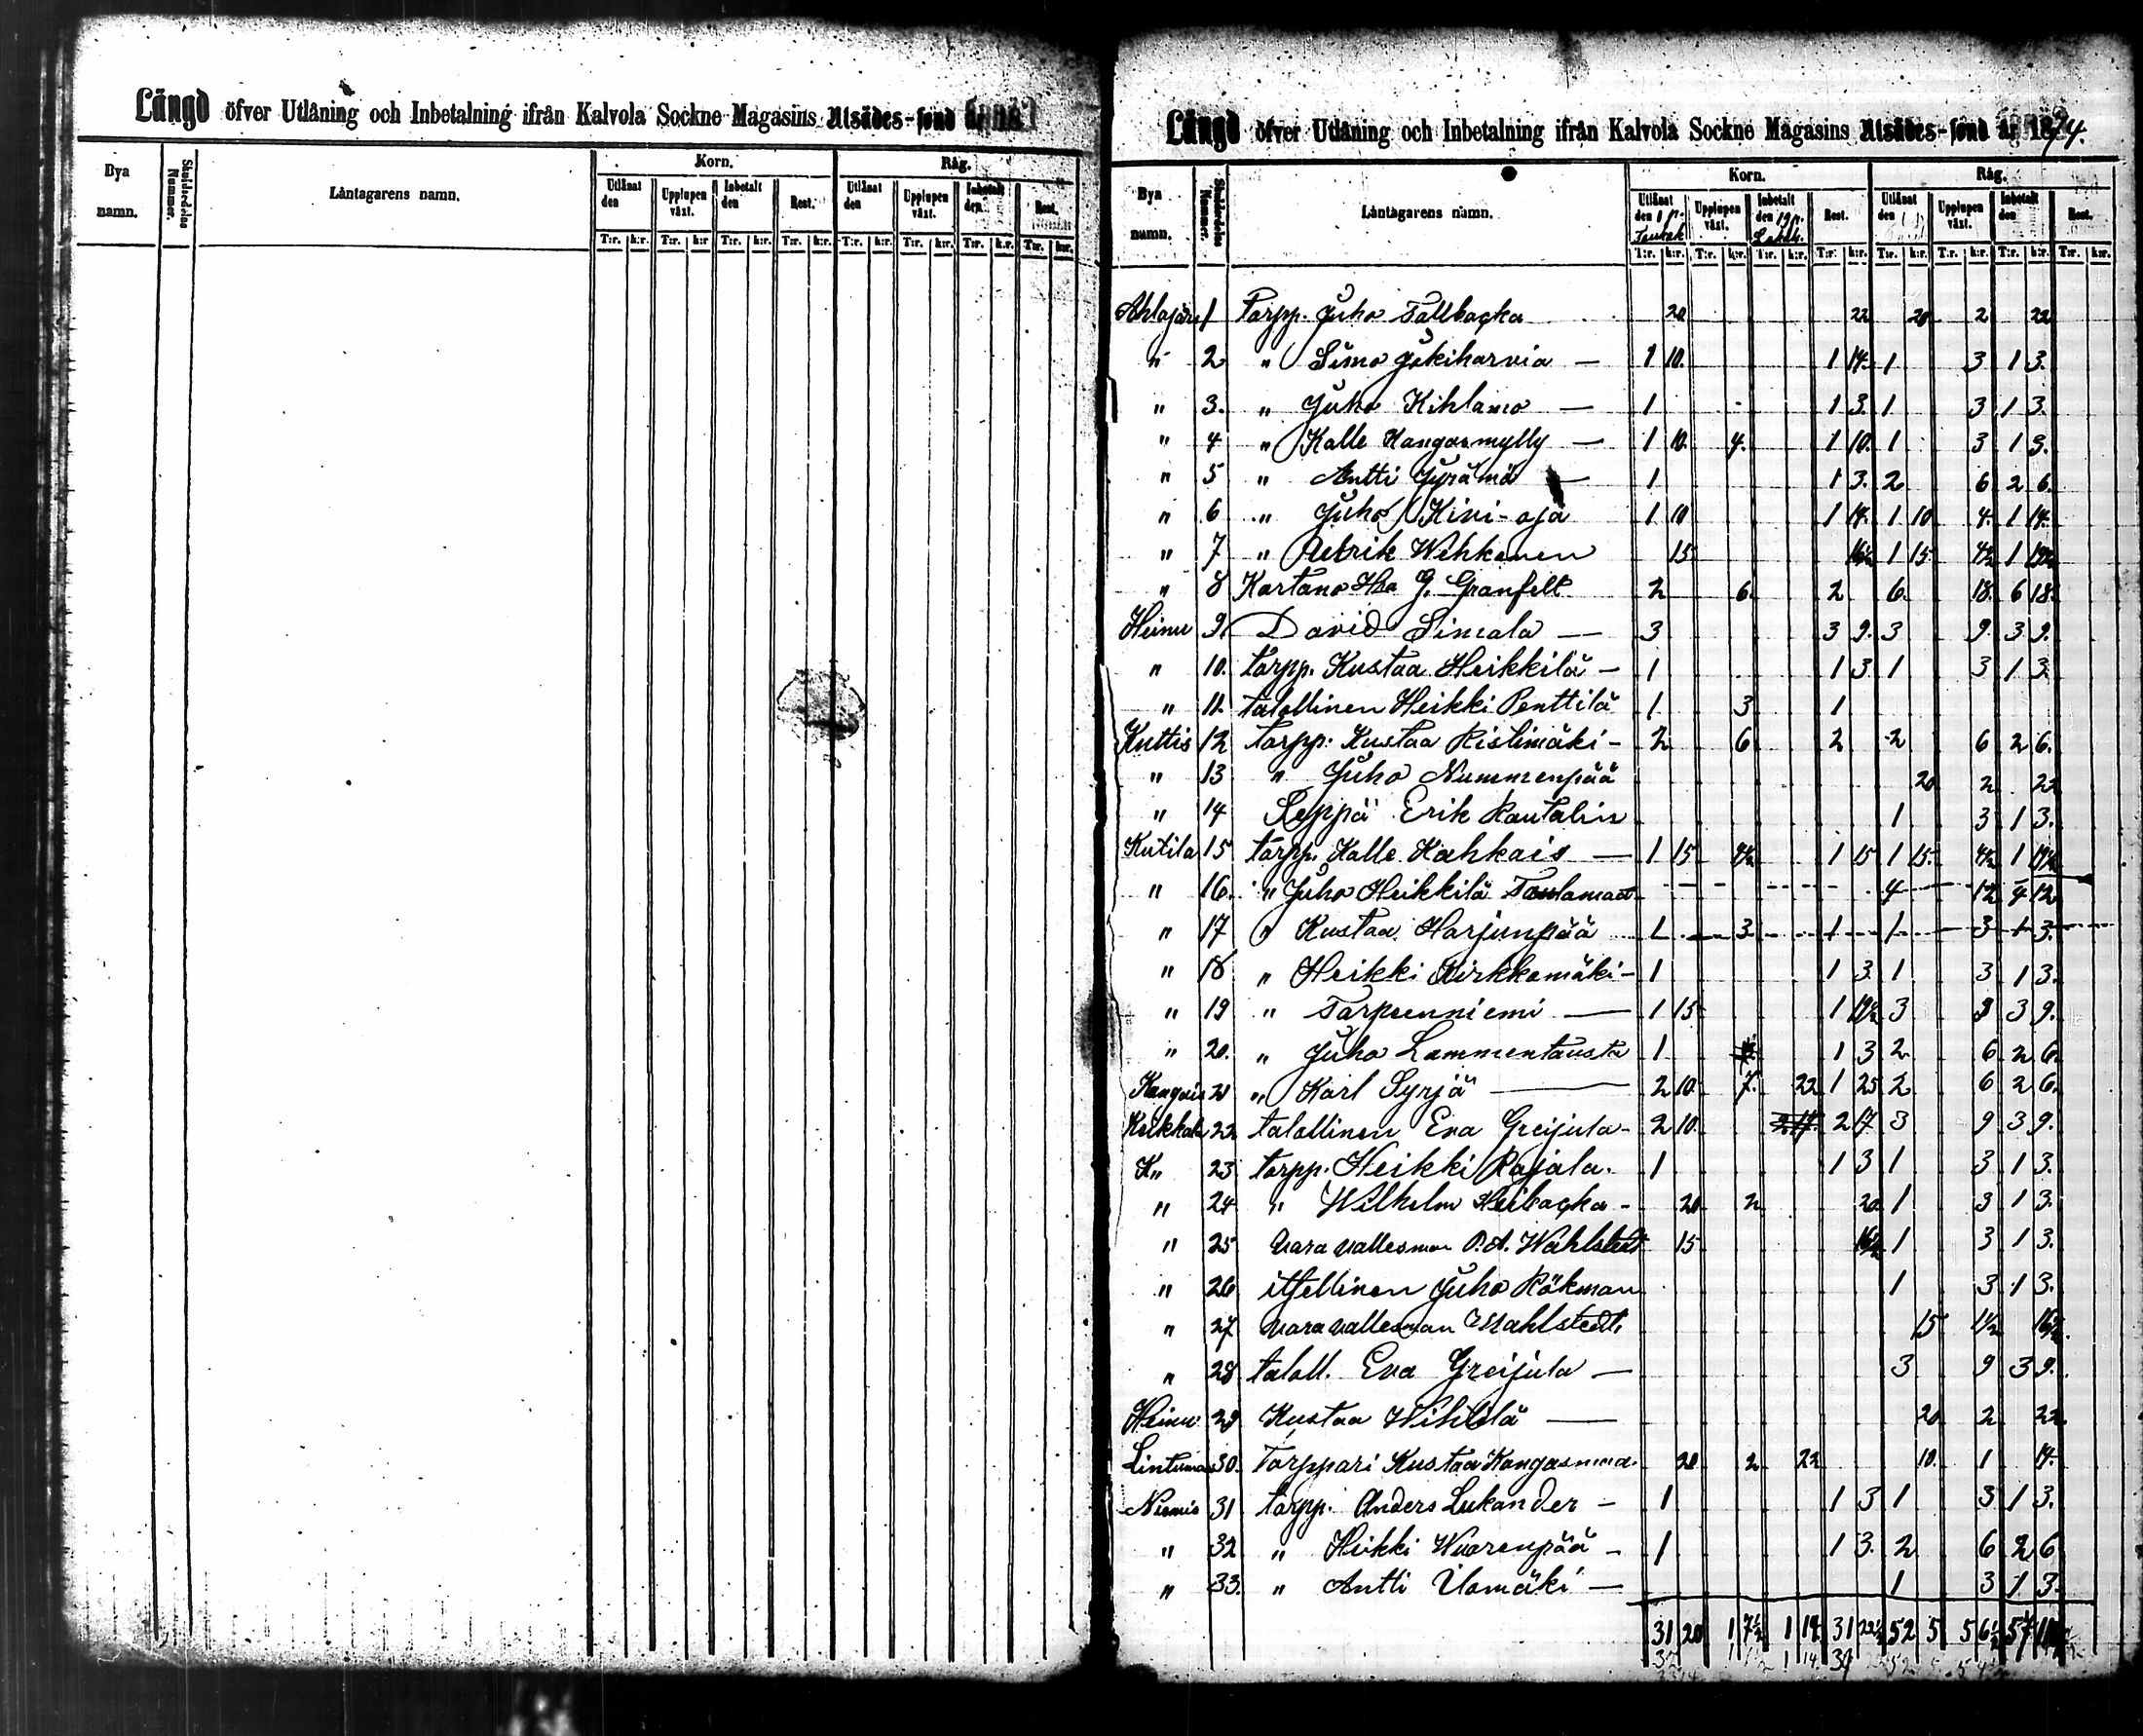 Längd öfver Utlåning och Inbetalning ifrån Kalvola Sockne Magasins Utsädes-fond år 18
Bya namn. Skuldsedelns Nummer. Låntagarens namn. Korn. Råg.
Utlånat den Upplupen växt. Inbetalt den Rest. Utlånat den Upplupen växt. Inbetalt den Rest.
T:r. k:r. T:r. k:r T:r. k:r. T:r. k:r. T:r. k:r. T:r. k:r. T:r. k:r. T:r. k:r.
Längd öfver Utlåning och Inbetalning ifrån Kalvola Sockne Magasins Utsädes-fond år 1894.
Bya namn. Skuldsedelns Nummer. Låntagarens namn. Korn. Råg.
Utlånat den 1 p. Toukok Upplupen växt. Inbetalt den 19 p. Rest. Utlånat den Upplupen växt. Inbetalt den Rest.
T:r. k:r. T:r. k:r. T:r. k:r. T:r. k:r. T:r. k:r. T:r. k:r. T:r. k:r. T:r. k:r.
1 Torpp. Juho Tallbacka 20 22 20 2 22
" 2 " Simo Jokiharvia — 1 10. 1 14. 1 3 1 3.
" 3. " Juho Kihlamo — 1 1 3. 1 3 1 3.
" 4 " Kalle Kangasmylly — 1 10. 4. 1 10. 1 3 1 3.
" 5 " Antti Jyrämä — 1 1 3. 2 6 2 6.
" 6 " Juho Kivi-oja 1 10 1 14. 1 10 4. 1 14.
" 7 " Wehkanen 15 16½ 1 15 4½ 1 19½
" 8 Kartano Hra G. Granfelt 2 6. 2 6. 18. 6 18.
Heinu 9. David Simola — 3 3 9. 3 9. 3 9.
" 10. torpp. Kustaa Heikkilä — 1 1 3 1 3 1 3
" 11. talollinen Heikki Penttilä 1 3 1
Kuttis 12 torpp. Kustaa Ristimäki — 2 6 2 2 6 2 6.
" 13 " Juho Nummenpää 20 2 22
" 14 Seppä Erik Rautalin 1 3 1 3.
Kutila 15 torpp. Kalle Kahkais — 1 15 4½ 1 15 1 15. 4½ 1 19½
" 16. " Juho Heikkilä 4 12 4 12
" 17 " Kustaa Harjunpää 1 3 1 1 3 1 3.
" 18 " Heikki Kirkkomäki — 1 1 3. 1 3 1 3.
" 19 " Torpeenniemi — 1 15 1 19½ 3 9 3 9.
" 20. " Juho Lammentausta 1 1 3 2 6 2 6.
Kangais 21 " Karl Syrjä — 2 10. 7. 22 1 25 2 6 2 6.
Keikkala 22 talollinen Eva Greijula — 2 10. 2 17 3 9 3 9.
K" 23 torpp. Heikki Rajala. 1 1 3 1 3 1 3.
" 24 " Wilhelm Heibacka — 20 2 20. 1 3 1 3.
" 25 Vara vallesman P.A. Wahlstedt 15 16½ 1 3 1 3.
" 26 itsellinen Juho Rökman 1 3 1 3.
" 27 Vara vallesman Wahlstedt. 15 1½ 16½.
" 28 taloll. Eva Greijula — 3 9 3 9.
Heinu 29 Kustaa — 20 2 22
30. Torppari Kustaa Kangasmaa. 20 2 22 10. 1 14.
Niemis 31 torpp. Anders Lukander — 1 1 3 1 3 1 3.
" 32 " Heikki Wuorenpää — 1 1 3. 2 6 2 6
" 33. " Antti Ulomäki — 1 3 1 3.
31 20 1 7½ 1 14 31 22½ 52 5 5 6½ 57